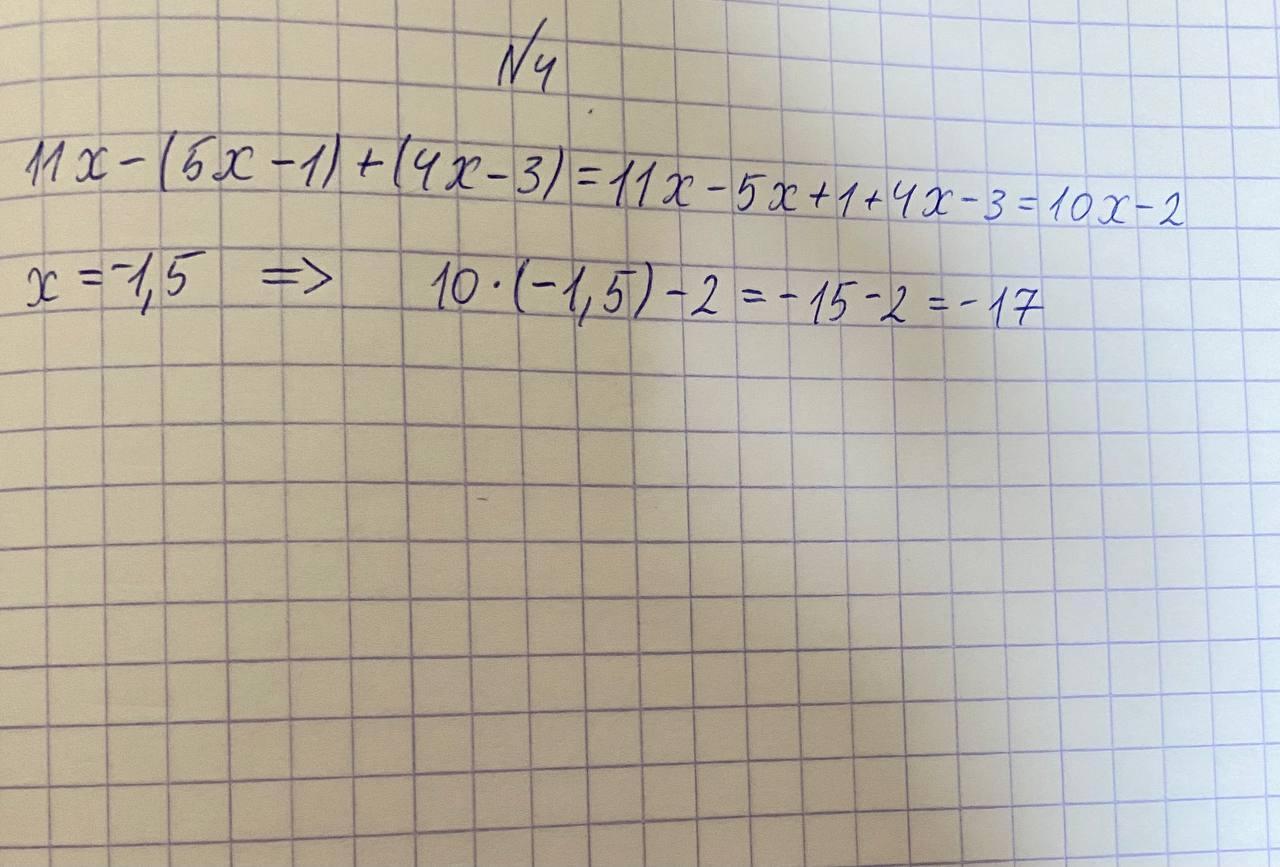 N4
11x-(5x-1)+(4x-3)=11x-5x+1+4x-3=10x-2
x=-1,5 => 10·(-1,5)-2=-15-2=-17